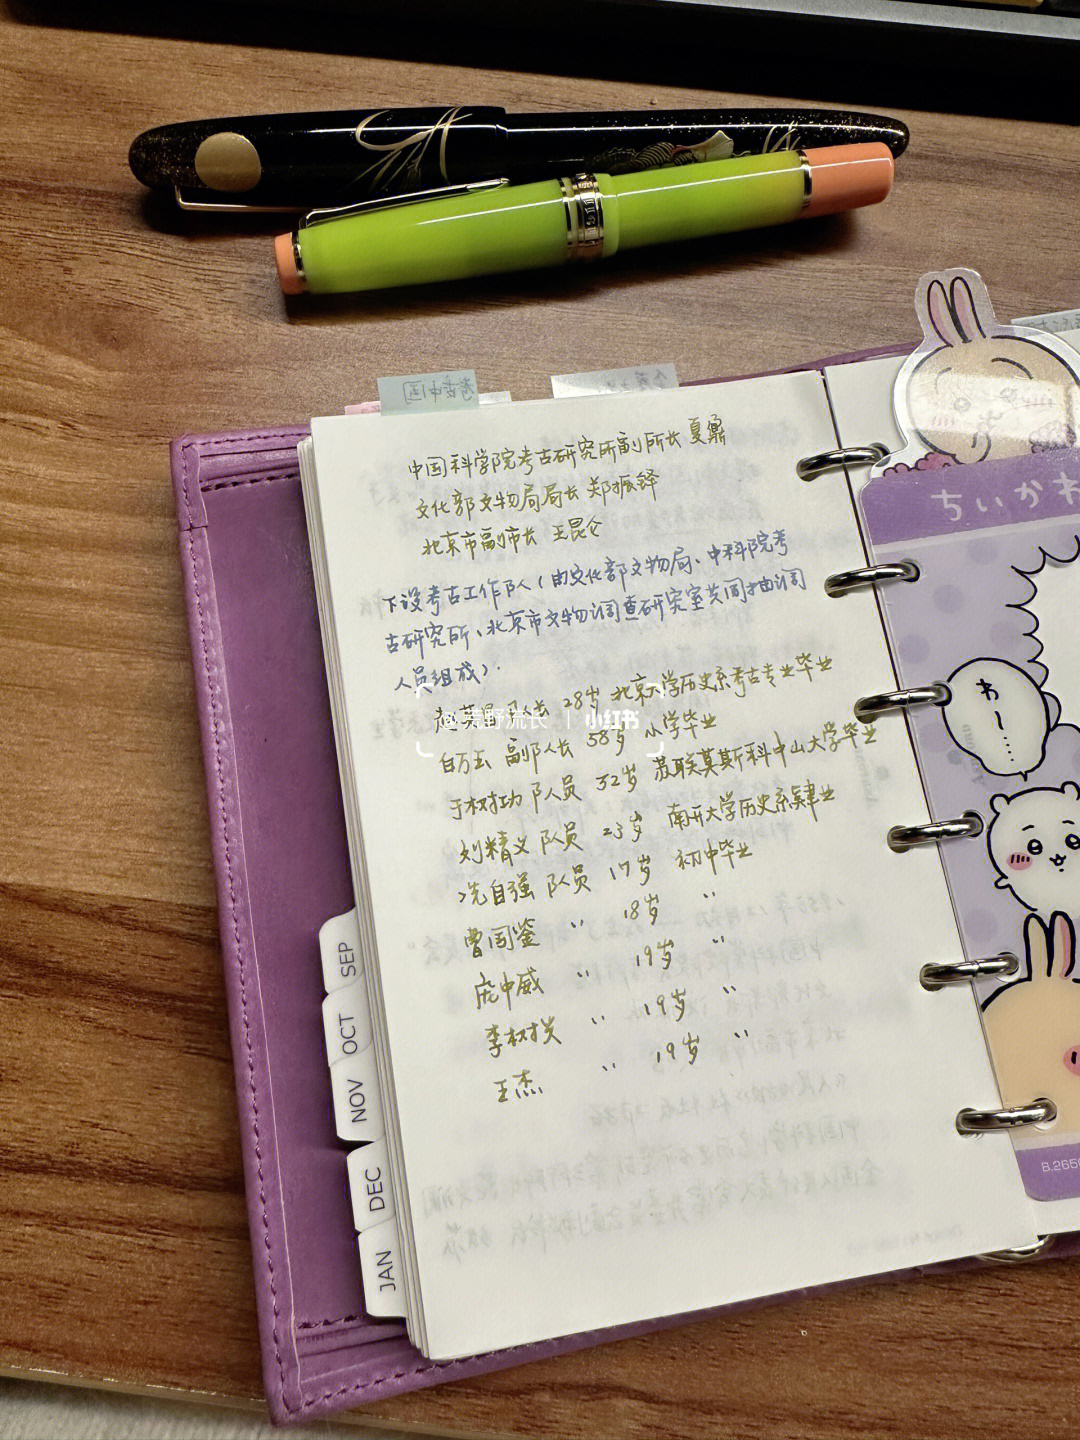 中国科学院考古研究所副所长 夏鼐
文化部文物局局长 郑振铎
北京市副市长 王昆仑
下设考古工作队(由文化部文物局、中科院考
古研究所、北京市文物调查研究室共同抽调
人员组成).
赵其昌 队长 28岁 北京大学历史系考古专业毕业
白万玉 副队长 58岁 小学毕业
于树功 队员 32岁 苏联莫斯科中山大学毕业
刘精义 队员 23岁 南开大学历史系肄业
冼自强 队员 17岁 初中毕业
曹国鉴 〃 18岁 〃
庞中威 〃 19岁 〃
李树兴 〃 19岁 〃
王杰 〃 19岁 〃
@荒野流长 | 小红书
ちいかわ
わ
SEP
OCT
NOV
DEC
JAN